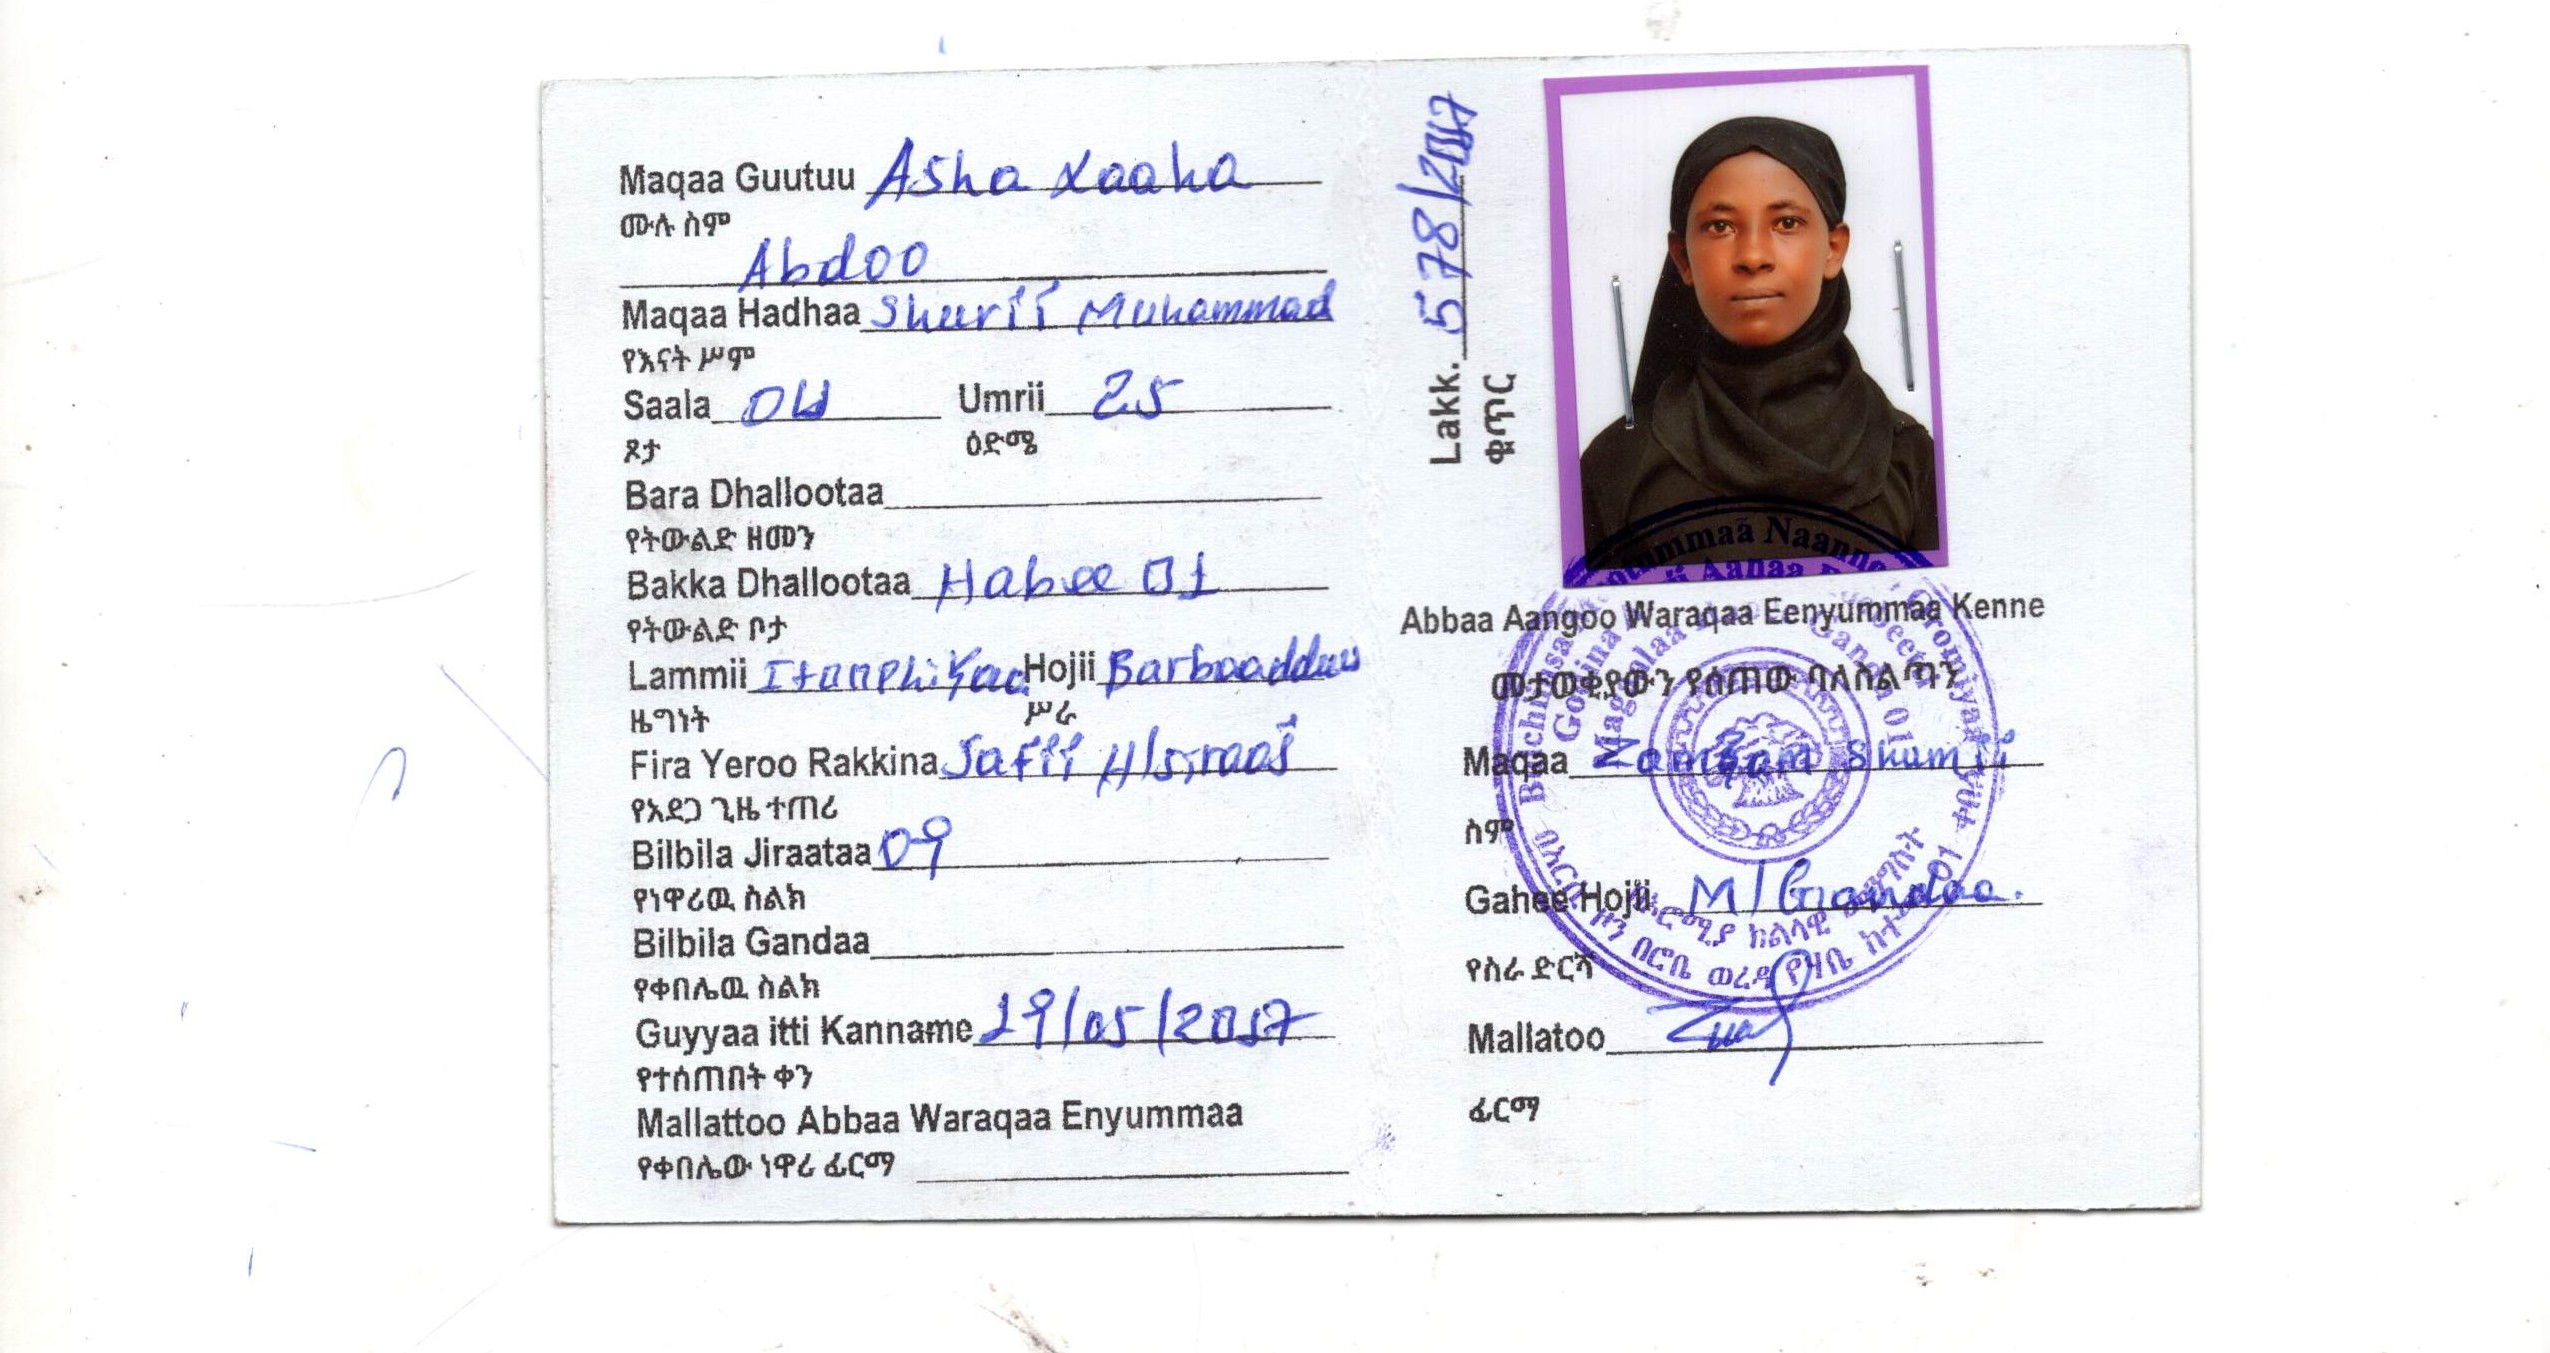 Maqaa Guutuu Asha Xaaha
ሙሉ ስም
Abdoo
Maqaa Hadhaa Shurii Muhammad
የእናት ሥም
Saala Dh Umrii 25
ጾታ ዕድሜ
Bara Dhallootaa
የትውልድ ዘመን
Bakka Dhallootaa Habee 01
የትውልድ ቦታ
Lammii Itoophiyaa Hojii Barbaadduu
ዜግነት ሥራ
Fira Yeroo Rakkina Safii
የአደጋ ጊዜ ተጠሪ
Bilbila Jiraataa 09
የነዋሪዉ ስልክ
Bilbila Gandaa
የቀበሌዉ ስልክ
Guyyaa itti Kanname 29/05/2017
የተሰጠበት ቀን
Mallattoo Abbaa Waraqaa Enyummaa
የቀበሌው ነዋሪ ፊርማ
Lakk. 578/2017
ቁጥር
Abbaa Aangoo Waraqaa Eenyummaa Kenne
መታወቂያውን የሰጠው ባለስልጣን
Maqaa Zamzam Shamii
ስም
Gahee Hojii M/Gandaa.
የስራ ድርሻ
Mallatoo
ፊርማ